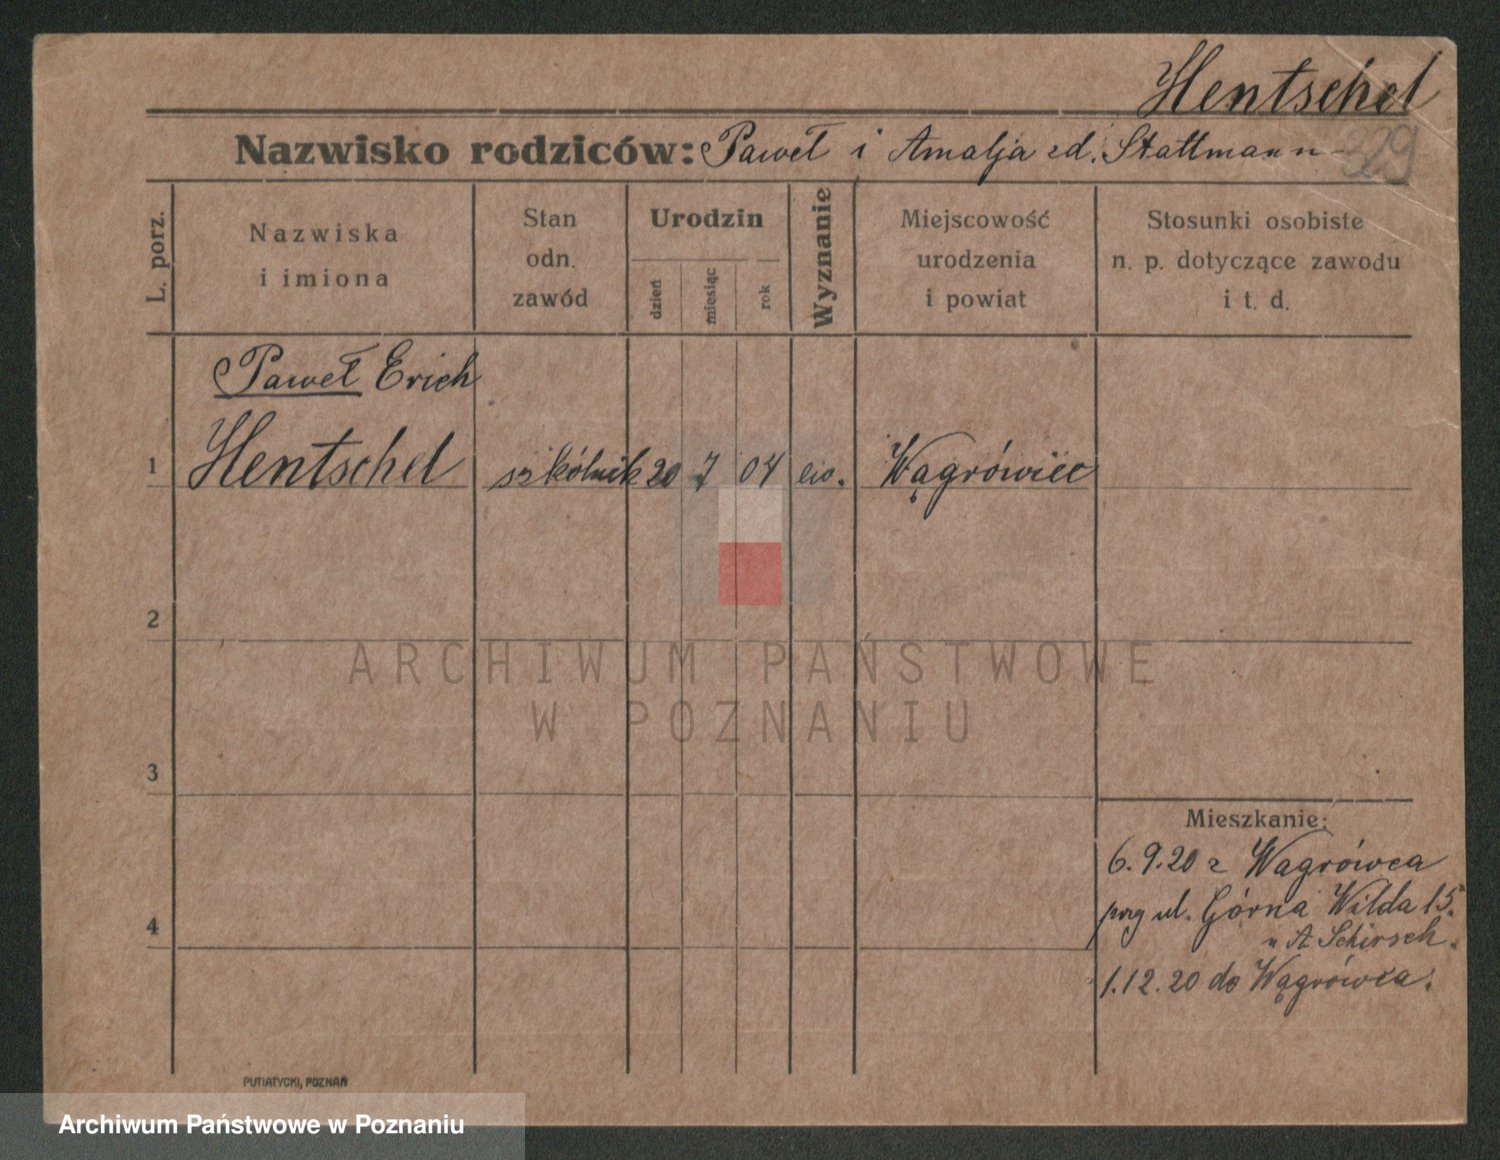 Hentschel
Nazwisko rodziców: Paweł i Amalja zd. Stattmann
329
L. porz.
Nazwiska
i imiona
Stan
odn.
zawód
Urodzin
dzień
miesiąc
rok
Wyznanie
Miejscowość
urodzenia
i powiat
Stosunki osobiste
n. p. dotyczące zawodu
i t. d.
Paweł Erich
1 Hentschel szkólnik 20 7 04 ew. Wągrówiec
2
ARCHIWUM PAŃSTWOWE
W POZNANIU
3
Mieszkanie:
6.9.20 z Wagrówca
przy ul. Górna Wilda 15.
u A Schirsch.
4
1.12.20 do Wągrówca.
PUTIATYCKI, POZNAŃ
Archiwum Państwowe w Poznaniu